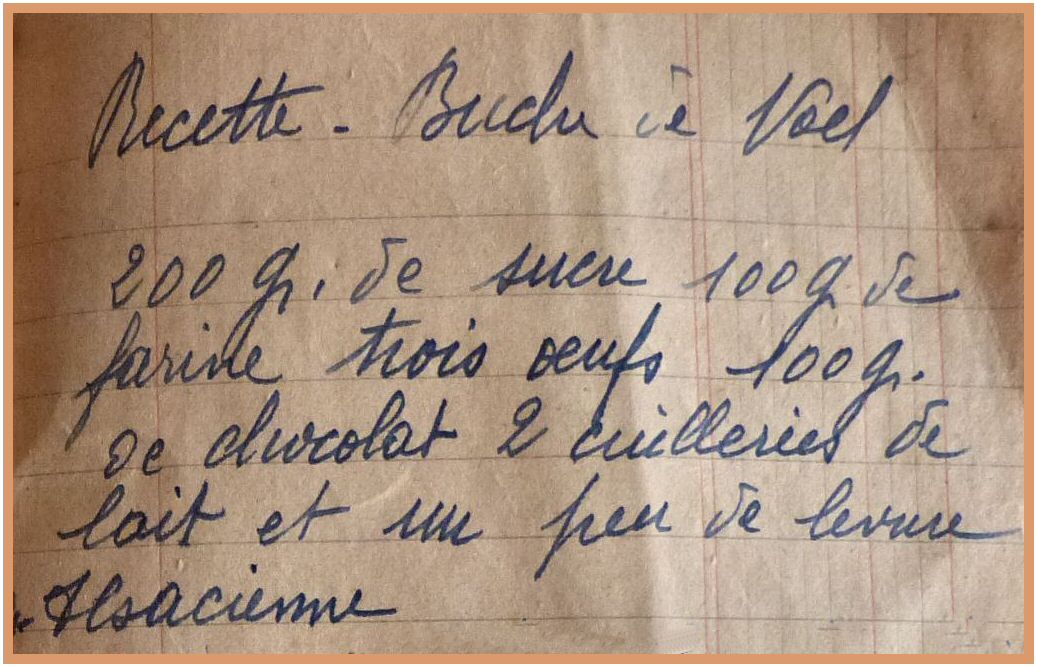 Recette - Buche de Noel
200 gr. de sucre 100 g de
farine trois œufs 100 gr.
de chocolat 2 cuilleries de
lait et un peu de levure
Alsacienne